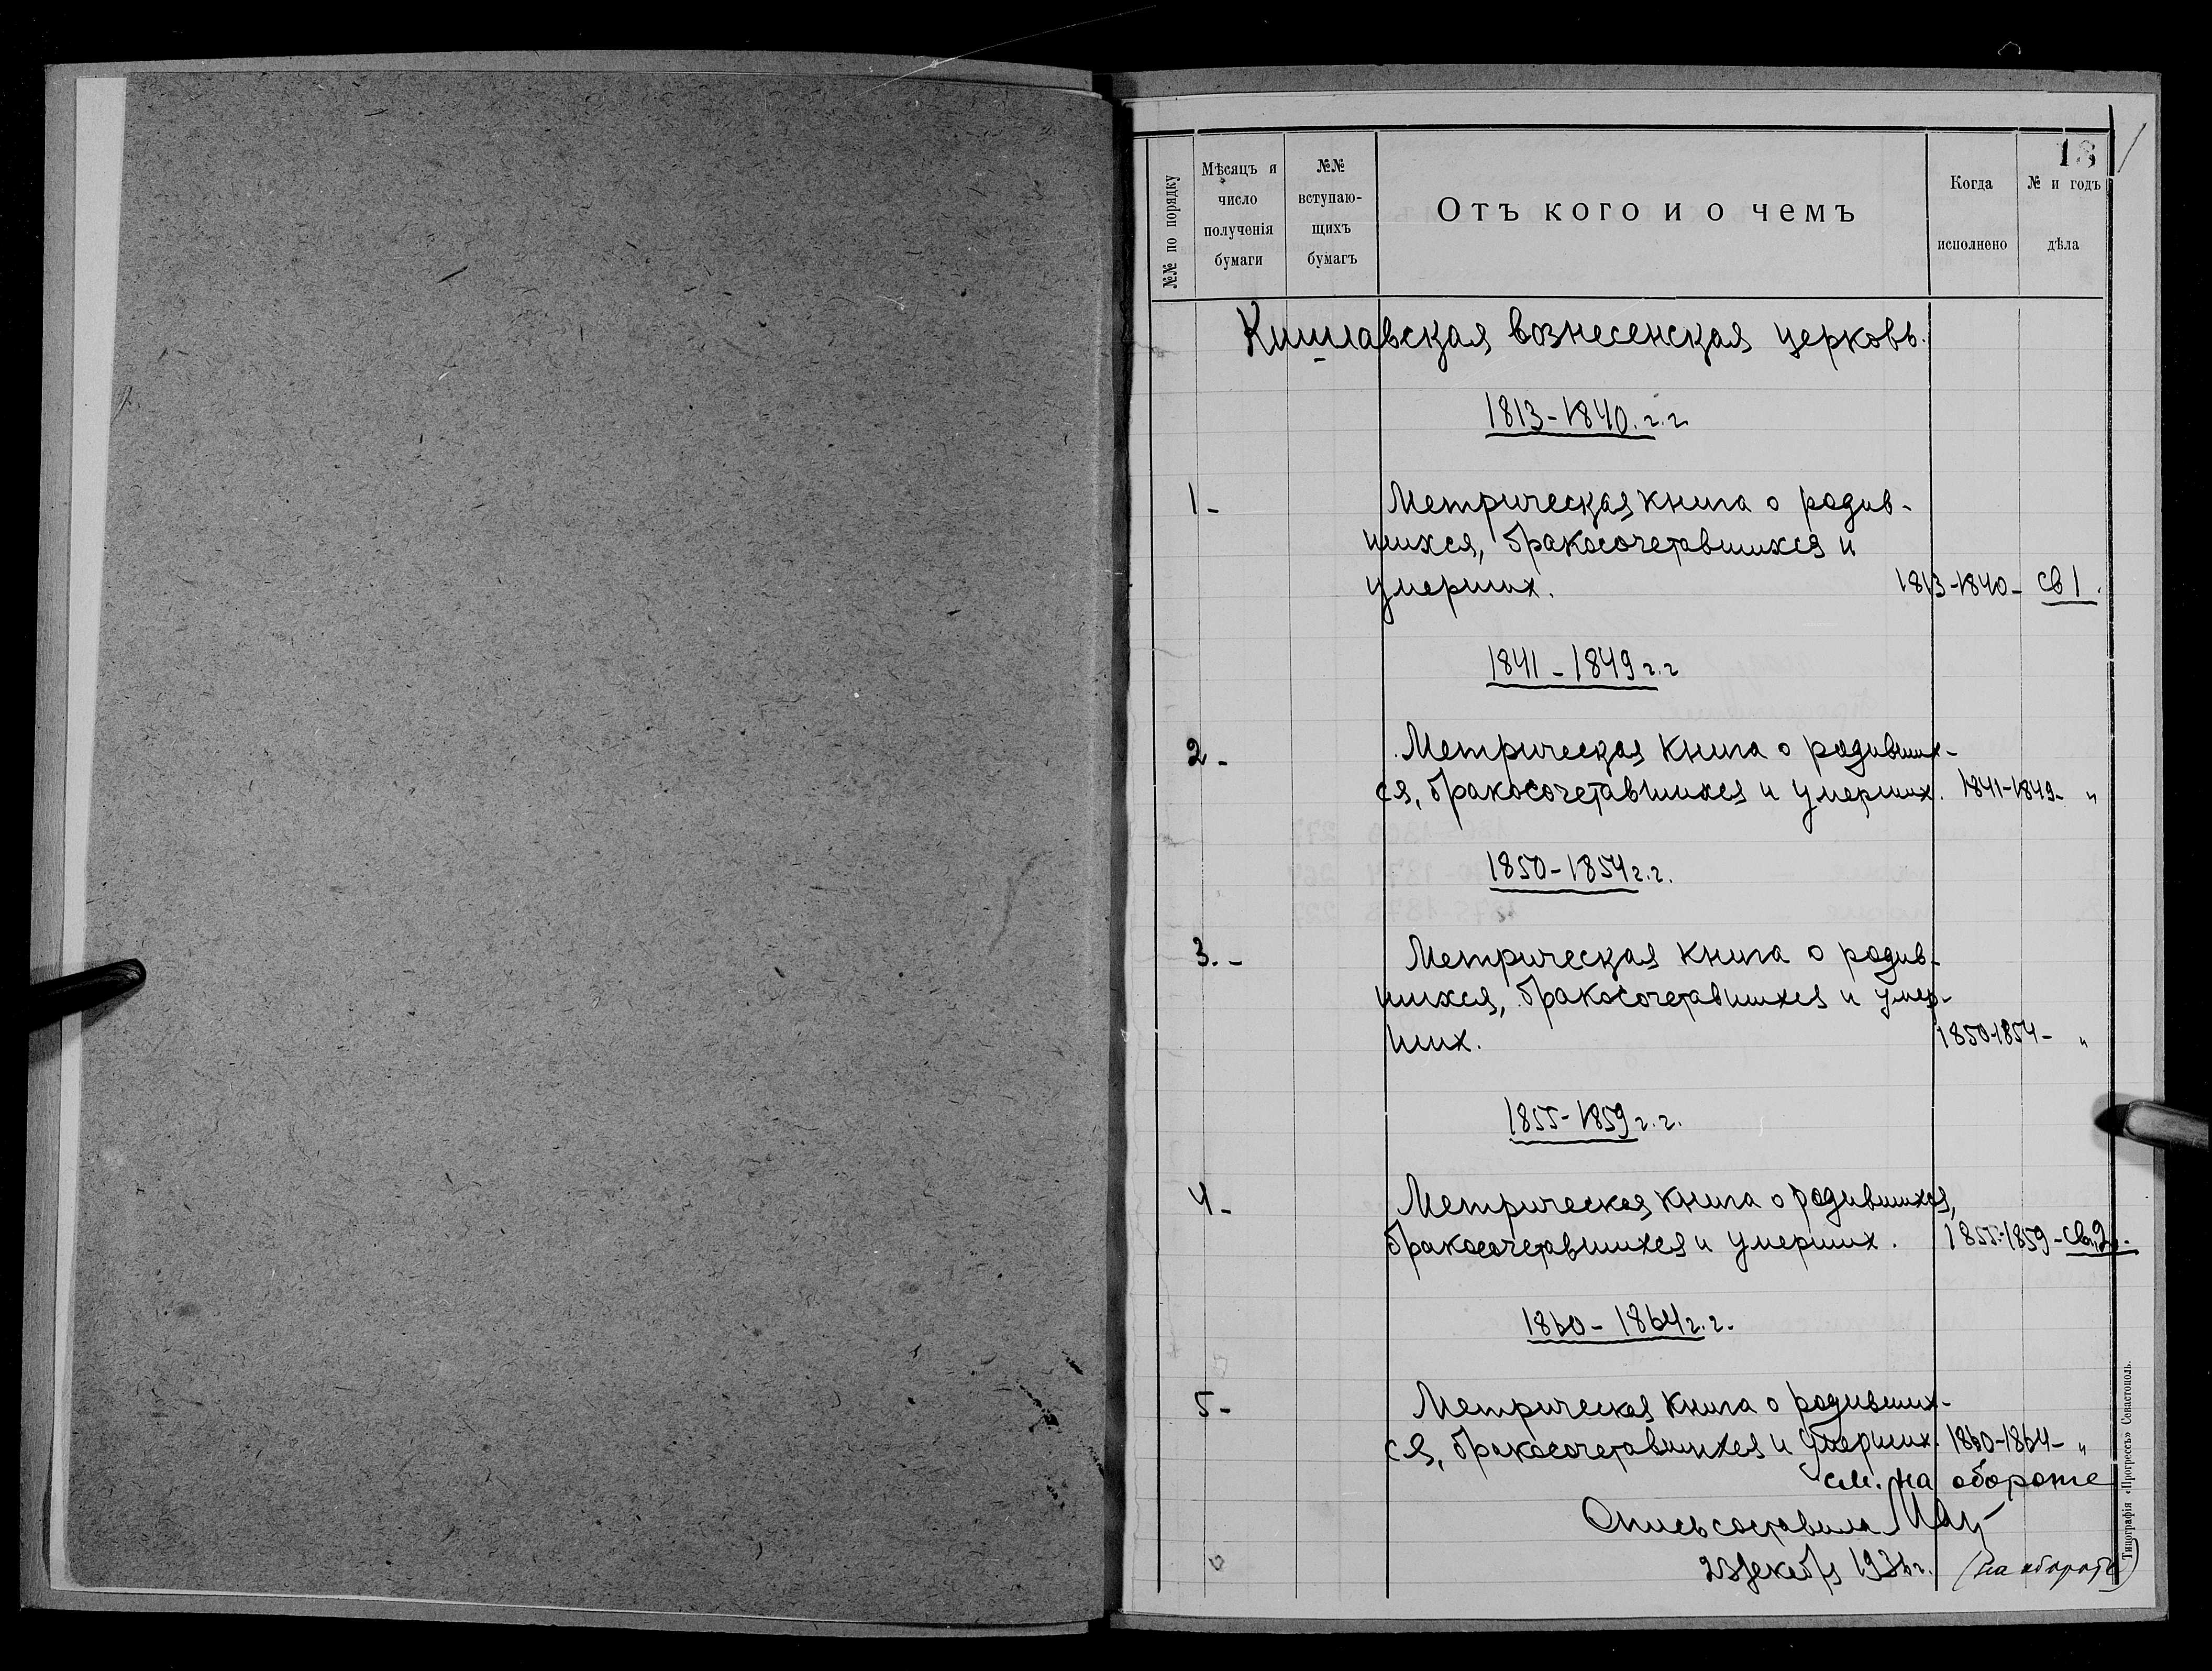 18
№№ по порядку
Мѣсяцъ и число полученія бумаги
№№ вступаю- щихъ бумагъ
Отъ кого и о чемъ
Когда исполнено
№ и годъ дѣла
Кишлавская вознесенская церковь.
1813-1840.г.г.
1- Метрическая книга о родив-
шихся, бракосочетавшихся и
умерших. 1813-1840- св 1.
1841-1849 г.г
2- Метрическая книга о родивших-
ся, бракосочетавшихся и умерших. 1841-1849- "
1850-1854 г.г.
3.- Метрическая книга о родив-
шихся, бракосочетавшихся и умер-
ших. 1850-1854- "
1855-1859 г.г.
4- Метрическая книга о родившихся,
бракосочетавшихся и умерших. 1855-1859-св.2.
1860-1864 г.г.
5- Метрическая книга о родивших-
ся, бракосочетавшихся и умерших. 1860-1864- "
см. на обороте
Опись составила
23 декабря 1936 г. (на обороте)
Типографія «Прогрессъ» Севастополь.